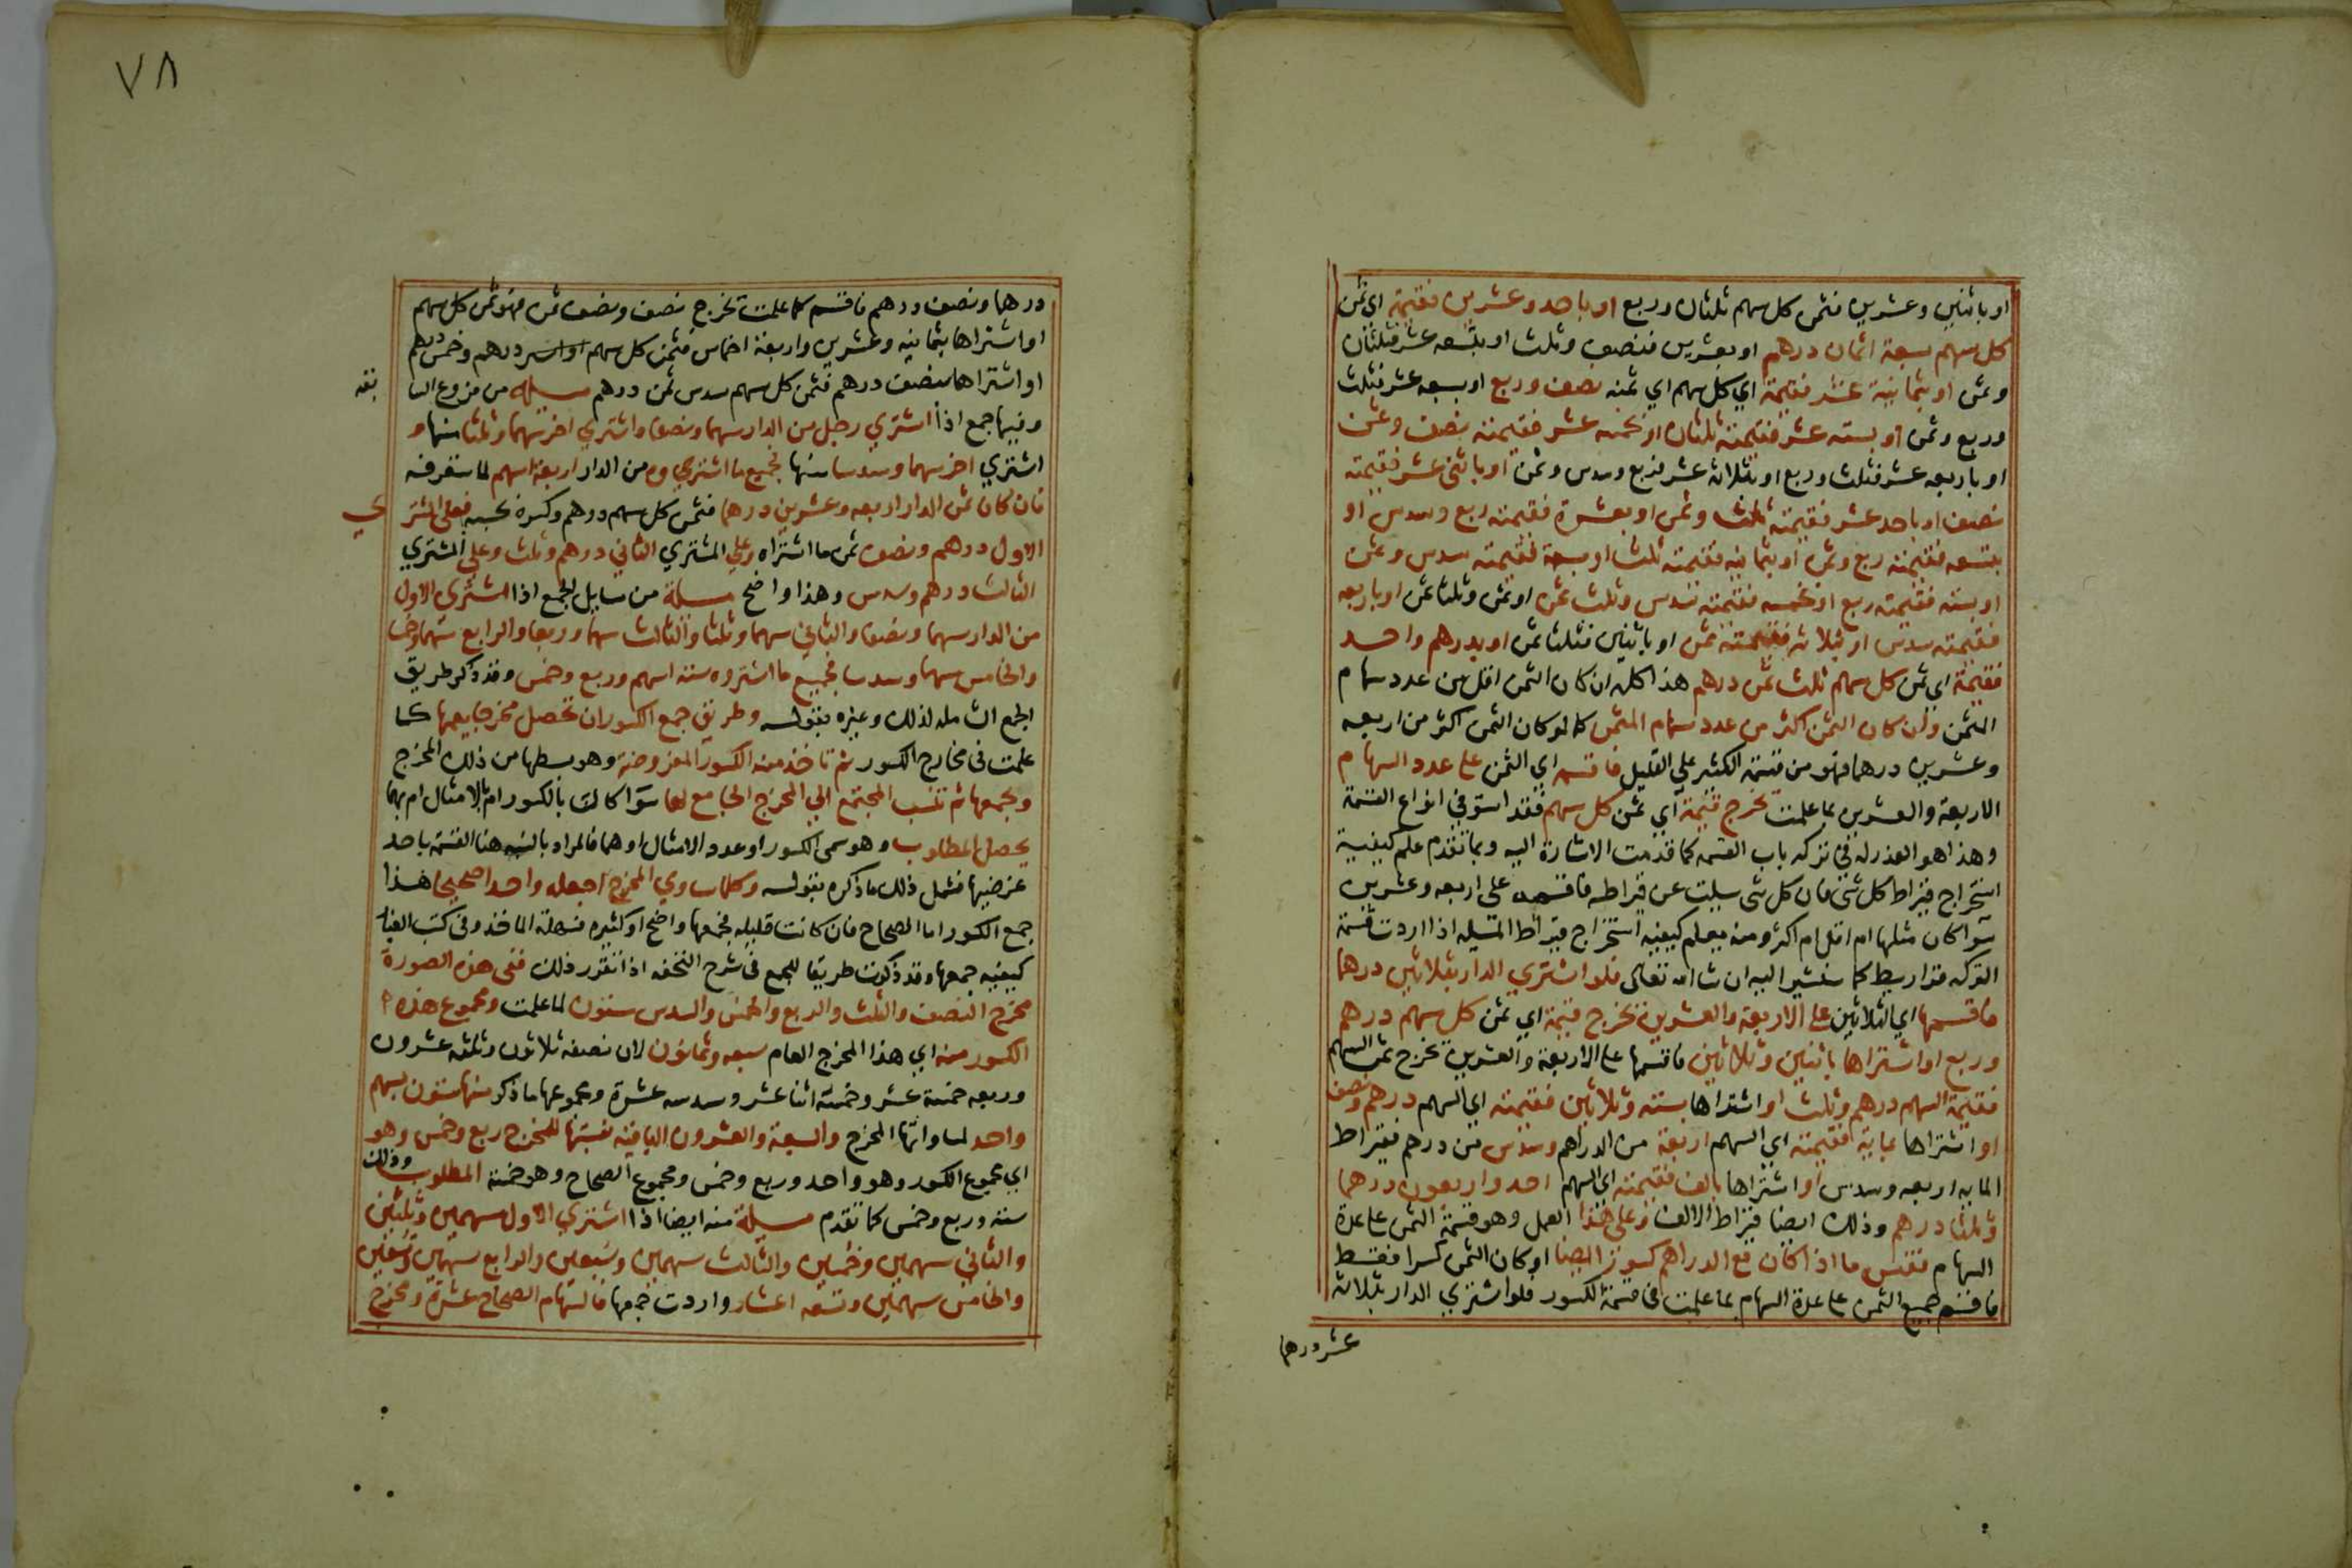 او باثنين وعشرين فثمن كل سهم ثلثان وربع او باحد وعشرين فقيمة اي ثمن
كل سهم سبعة اثمان درهم او بعشرين فنصف وثلث او بتسعه عشر فثلثان
وثمن او بثمانية عشر فقيمة اي كل سهم اي ثمنه نصف وربع او بسبعه عشر فثلث
وربع وثمن او بسته عشر فقيمته ثلثان او بخمسه عشر فقيمته نصف وثمن
او باربعه عشر فثلث وربع او بثلاثه عشر فربع وسدس وثمن او باثنى عشر فقيمته
نصف او باحد عشر فقيمته ثلث وثمن او بعشرة فقيمته ربع وسدس او
بتسعه فقيمته ربع وثمن او بثمانيه فقيمته ثلث او بسبعة فقيمته سدس وثمن
او بسته فقيمته ربع او بخمسه فقيمته سدس وثلث ثمن او ثمن وثلثا ثمن او باربعه
فقيمته سدس او بثلاثه فقيمته ثمن او باثنين فثلثا ثمن او بدرهم واحد
فقيمة اي ثمن كل سهم ثلث ثمن درهم هذا كله ان كان الثمن اقل من عدد سهام
الثمن وان كان الثمن اكثر من عدد سهام المثمن كما لو كان الثمن اكثر من اربعه
وعشرين درهما فهو من قسمة الكثير علي القليل فاقسمه اي الثمن على عدد السهام
الاربعة والعشرين بما علمت تخرج قيمة اي ثمن كل سهم فقد استوفي انواع القسمة
وهذا هو العذر له في تركه باب القسمه كما قدمت الاشارة اليه وبما تقدم علم كيفية
استخراج قيراط كل شى فان كل شى سيلت عن قيراطه فاقسمه على اربعه وعشرين
سوا كان مثلها ام اقل ام اكثر ومنه يعلم كيفيه استخراج قيراط المسيله اذا اردت قسمة
التركه قراريط كما سنشير اليه ان شا الله تعالى فلو اشتري الدار بثلاثين درهما
فاقسمها اي الثلاثين على الاربعة والعشرين تخرج قيمة اي ثمن كل سهم درهم
وربع او اشتراها باثنين وثلاثين فاقسمها على الاربعة والعشرين تخرج ثمن السهم
فقيمة السهم درهم وثلث او اشتراها بسته وثلاثين فقيمته اي السهم درهم ونصف
او اشتراها بماية فقيمته اي السهم اربعة من الدراهم وسدس من درهم فقيراط
المايه اربعه وسدس او اشتراها بالف فقيمته اي السهم احد واربعون درهما
وثلثا درهم وذلك ايضا قيراط الالف وعلى هذا العمل وهو قسمة الثمن على عدة
السهام فقس ما اذا كان مع الدراهم كسور ايضا او كان الثمن كسرا فقط
فاقسم جميع الثمن على عدة السهام بما علمت في قسمة الكسور فلو اشتري الدار بثلاثة
عشر درهما
٧٨
درهما ونصف درهم فاقسم كما علمت تخرج نصف ونصف ثمن فهو ثمن كل سهم
او اشتراها بثمانيه وعشرين واربعة اخماس فثمن كل سهم درهم وخمس درهم
او اشتراها بنصف درهم فثمن كل سهم سدس ثمن درهم مسيله من فروع السا
بقه
وفيها جمع اذا اشتري رجل من الدار سهما ونصفا واشتري اخر سهما وثلثا منها و
اشتري اخر سهما وسدسا منها فجميع ما اشتروه من الدار اربعة اسهم لما ستعرفه
فان كان ثمن الدار اربعه وعشرين درهما فثمن كل سهم درهم وكسره بحسبه فعلى المشتر
ي
الاول درهم ونصف ثمن ما اشتراه وعلي المشتري الثاني درهم وثلث وعلي المشتري
الثالث درهم وسدس وهذا واضح مسيلة من سايل الجمع اذا اشترى الاول
من الدار سهما ونصفا والثاني سهما وثلثا والثالث سهما وربعا والرابع سهما وخمسا
والخامس سهما وسدسا فجميع ما اشتروه ستة اسهم وربع وخمس وقد ذكر طريق
الجمع الشامله لذلك وغيره بقوله وطريق جمع الكسور ان تحصل مخرجا يعمها كما
علمت في مخارج الكسور ثم تاخذ منه الكسور المفروضة وهو بسطها من ذلك المخرج
وتجمعها ثم تنسب المجتمع الي المخرج الجامع لها سوا كانت بالكسور ام بالامثال ام بهما
يحصل المطلوب وهو سمى الكسور او عدد الامثال او هما فالمراد بالنسبه هنا القسمة باحد
غرضيها فشمل ذلك ما ذكره بقوله وكلما ساوي المخرج اجعله واحدا صحيحا هذا
جمع الكسور اما الصحاح فان كانت قليله فجمعها واضح او كثيره فسهلة الماخذ وفي كتب الغبار
كيفيه جمعها وقد ذكرت طريقا للجمع في شرح التحفه اذا تقرر ذلك ففى هذه الصورة
مخرج النصف والثلث والربع والخمس والسدس ستون لما علمت ومجموع هذه
الكسور منه اي هذا المخرج العام سبعه وثمانون لان نصفه ثلاثون وثلثه عشرون
وربعه خمسة عشر وخمسه اثنا عشر وسدسه عشرة ومجموعها ما ذكر منها ستون بسهم
واحد لمساواتها المخرج والسبعة والعشرون الباقيه نسبتها للمخرج ربع وخمس وهو
اي مجموع الكسور وهو واحد وربع وخمس ومجموع الصحاح وهو خمسة المطلوب وذلك
ستة وربع وخمس كما تقدم مسيلة منه ايضا اذا اشتري الاول سهمين وثلثين
والثاني سهمين وخمسين والثالث سهمين وسبعين والرابع سهمين وتسعين
والخامس سهمين وتسعه اعشار واردت جمعها فالسهام الصحاح عشرة ومخرج